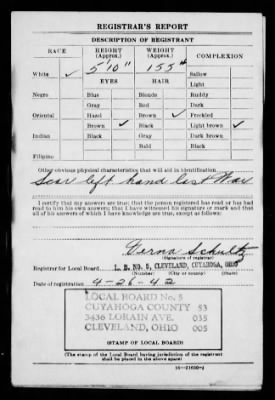 REGISTRAR'S REPORT
DESCRIPTION OF REGISTRANT
RACE HEIGHT (Approx.) WEIGHT (Approx.) COMPLEXION
White ✓ 5'10" 155 Sallow
EYES HAIR Light
Negro Blue Blonde Ruddy
Gray Red Dark
Oriental Hazel Brown ✓ Freckled
Brown ✓ Black Light brown ✓
Indian Black Gray Dark brown
Bald Black
Filipino
Other obvious physical characteristics that will aid in identification
Scar left hand last War
I certify that my answers are true; that the person registered has read or has had
read to him his own answers; that I have witnessed his signature or mark and that
all of his answers of which I have knowledge are true, except as follows:
Verna Schultz
(Signature of registrar)
Registrar for Local Board L. B. NO. 5, CLEVELAND, CUYAHOGA, OHIO
(Number) (City or county) (State)
Date of registration 4-26-42
LOCAL BOARD No. 5
CUYAHOGA COUNTY 53
3436 LORAIN AVE. 035
CLEVELAND, OHIO 005
STAMP OF LOCAL BOARD
(The stamp of the Local Board having jurisdiction of the registrant
shall be placed in the above space)